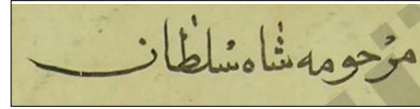 مرحومه شاه سلطان